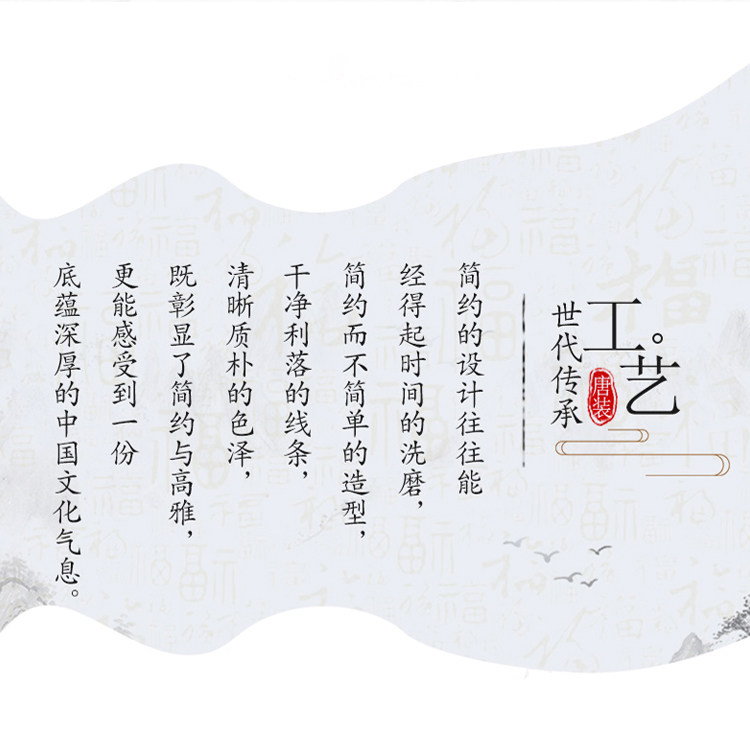 工艺
唐装
世代传承
简约的设计往往能
经得起时间的洗磨，
简约而不简单的造型，
干净利落的线条，
清晰质朴的色泽，
既彰显了简约与高雅，
更能感受到一份
底蕴深厚的中国文化气息。